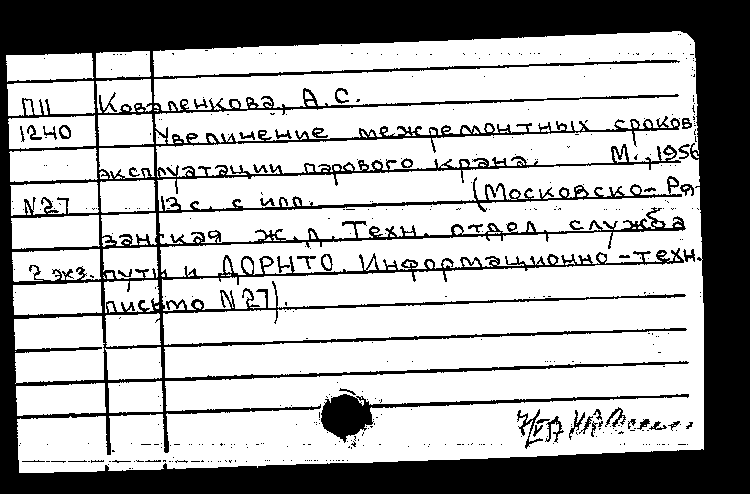 П11 Коваленкова, А.С.
1240 Увеличение межремонтных сроков
эксплуатации парового крана. М., 1956
N27 13 с. с илл. (Московско-Ря-
занская ж.д. Техн. отдел, служба
2 экз. пути и ДОРНТО. Информационно-техн.
письмо N27).